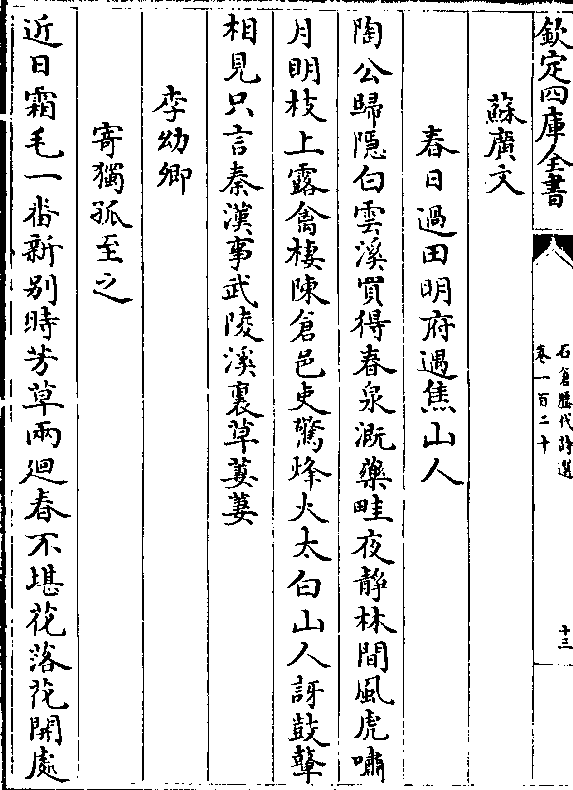 欽定四庫全書
石倉歷代詩選
卷一百二十
十三
蘇廣文
春日過田明府遇焦山人
陶公歸隱白雲溪買得春泉溉藥畦夜靜林間風虎嘯
月明枝上露禽棲陳倉邑吏驚烽火太白山人訝鼓鼙
相見只言秦漢事武陵溪裏草萋萋
李幼卿
寄獨孤至之
近日霜毛一番新别時芳草兩廻春不堪花落花開處